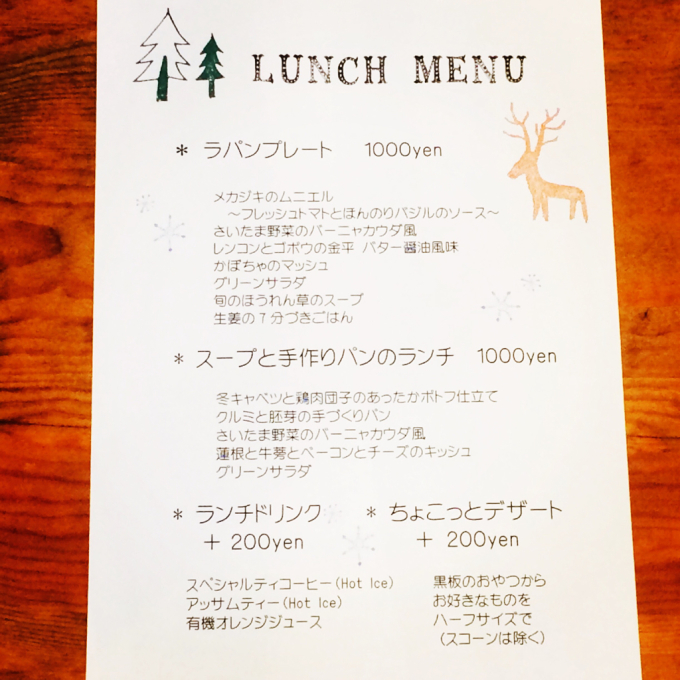 LUNCH MENU
* ラパンプレート 1000yen
メカジキのムニエル
～フレッシュトマトとほんのりバジルのソース～
さいたま野菜のバーニャカウダ風
レンコンとゴボウの金平 バター醤油風味
かぼちゃのマッシュ
グリーンサラダ
旬のほうれん草のスープ
生姜の7分づきごはん
* スープと手作りパンのランチ 1000yen
冬キャベツと鶏肉団子のあったかポトフ仕立て
クルミと胚芽の手づくりパン
さいたま野菜のバーニャカウダ風
蓮根と牛蒡とベーコンとチーズのキッシュ
グリーンサラダ
* ランチドリンク
+ 200yen
スペシャルティコーヒー(Hot Ice)
アッサムティー(Hot Ice)
有機オレンジジュース
* ちょこっとデザート
+ 200yen
黒板のおやつから
お好きなものを
ハーフサイズで
(スコーンは除く)